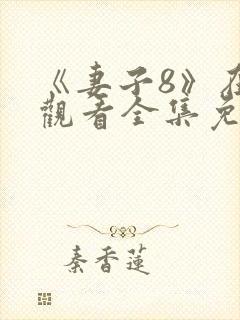 《妻子8》在
觀看全集免
秦香蓮